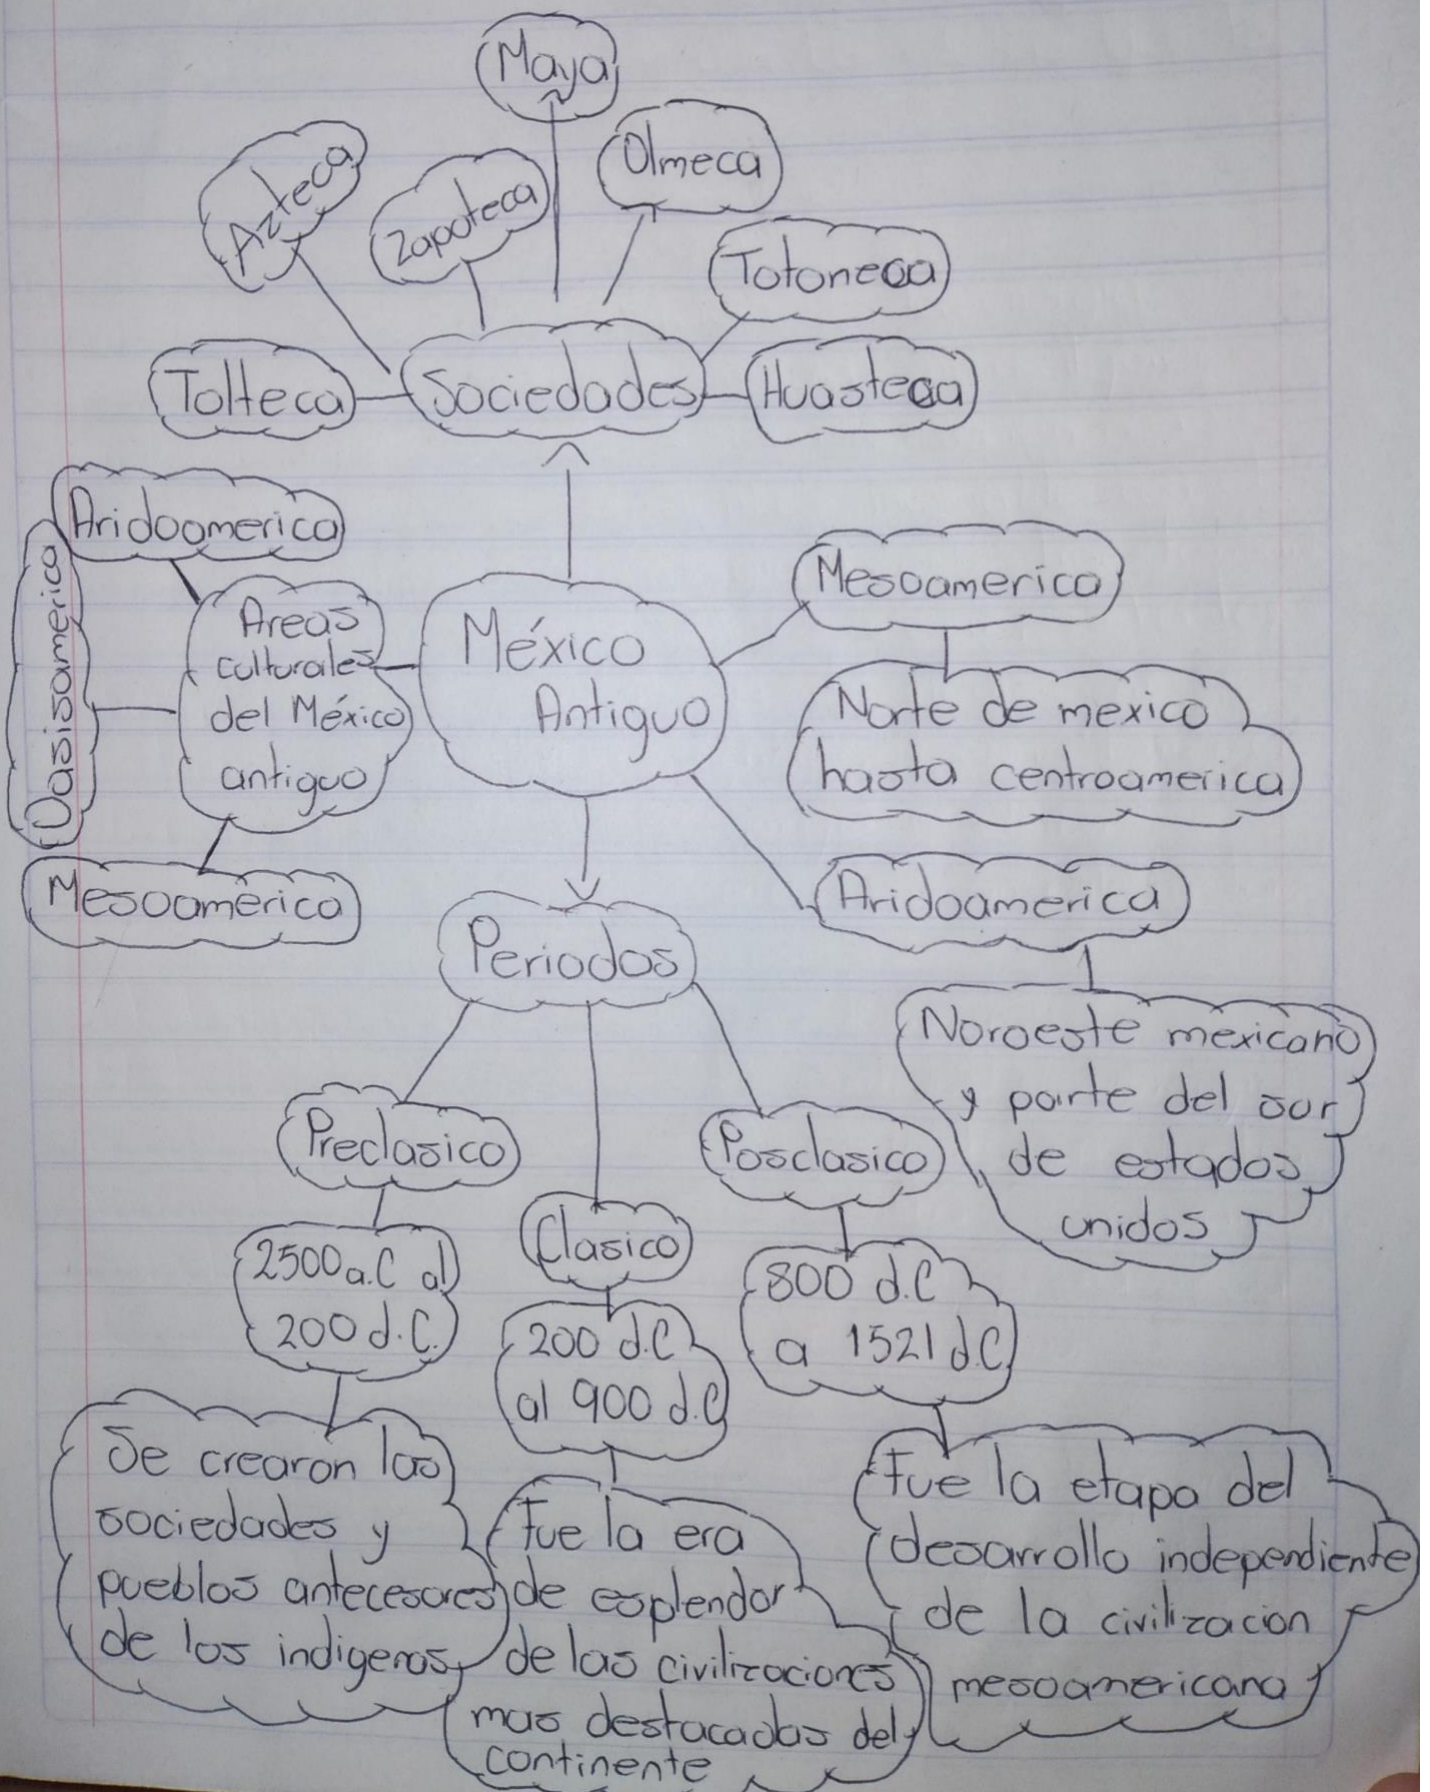 Maya
Olmeca
Azteca
Zapoteca
Totoneca
Tolteca
Sociedades
Huasteca
Aridoamerica
Oasisamerica
Areas
culturales
del México
antiguo
Mesoamerica
México
Antiguo
Mesoamerica
Norte de mexico
hasta centroamerica
Aridoamerica
Noroeste mexicano
y parte del sur
de estados
unidos
Periodos
Preclasico
2500 a.C al
200 d.C.
Se crearon las
sociedades y
pueblos antecesores
de los indigenas
Clasico
200 d.C
al 900 d.C
Fue la era
de esplendor
de las civilizaciones
mas destacadas del
continente
Posclasico
800 d.C
a 1521 d.C
Fue la etapa del
desarrollo independiente
de la civilizacion
mesoamericana